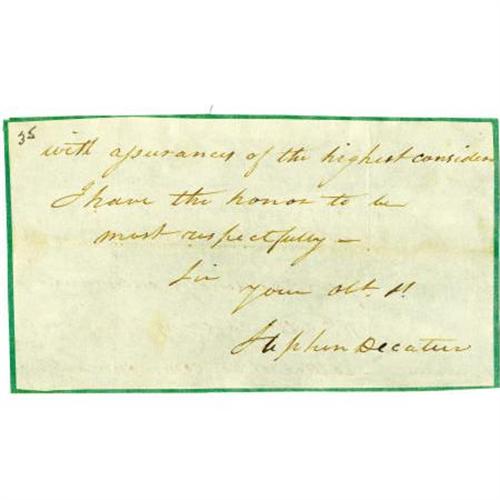 35
with assurances of the highest consider
I have the honor to be
most respectfully –
Sir
your obt. St.
Stephen Decatur